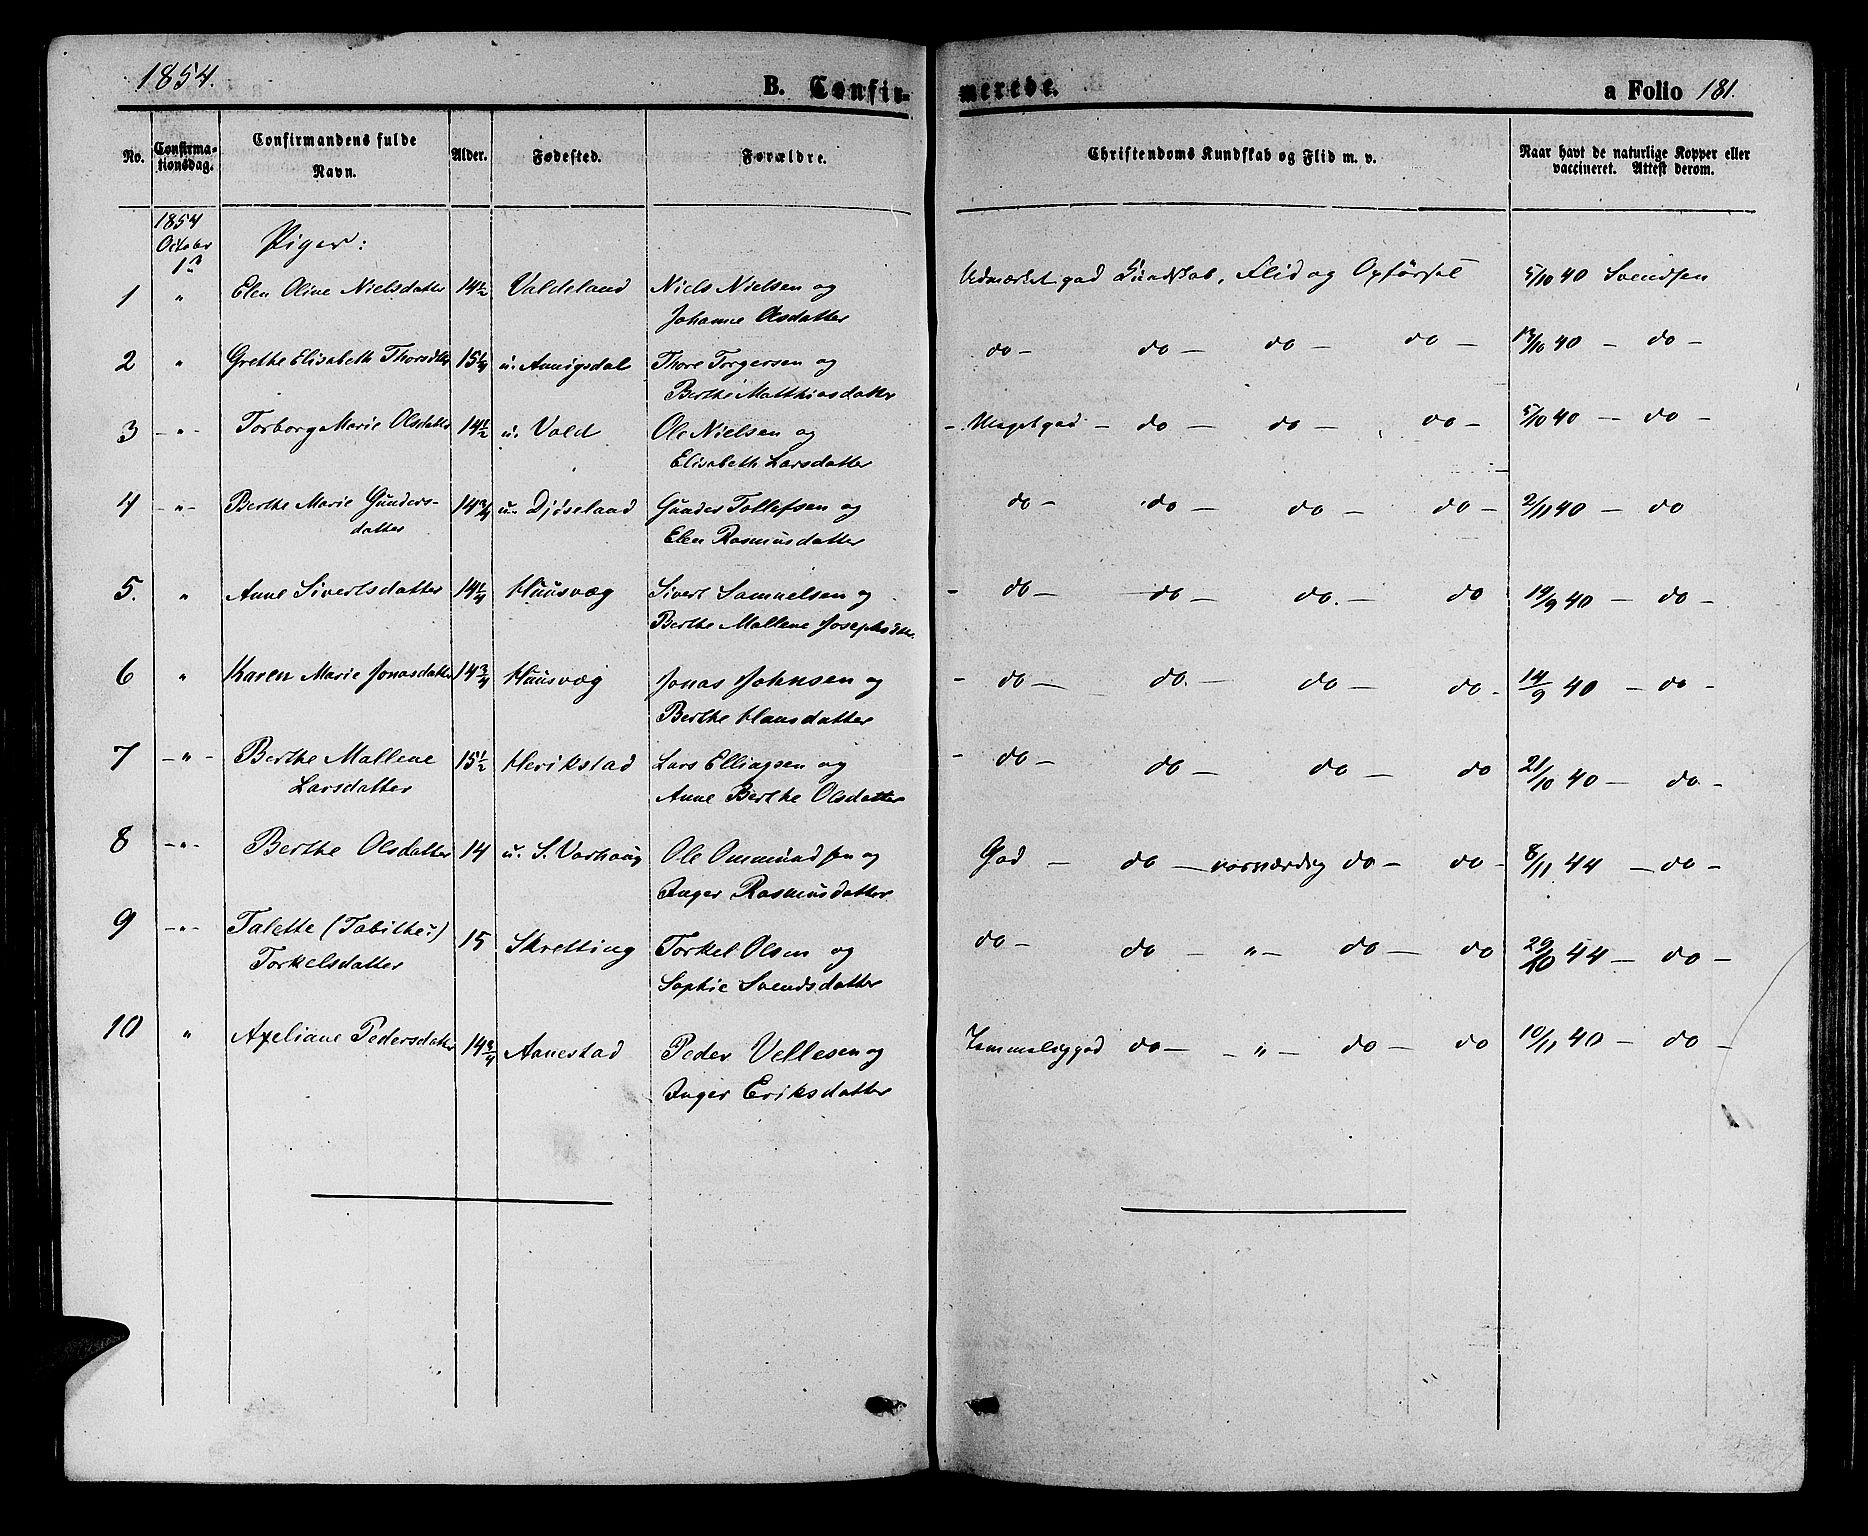 1854. B. Confirmerede. a Folio 181.
No. Confirmationsdag. Confirmandens fulde Navn. Alder. Fødested. Forældre. Christendoms Kundskab og Flid m. v. Naar havt de naturlige Kopper eller vaccineret. Attest derom.
1854
October
1ste Piger:
1 " Elen Oline Nielsdatter 14½ Valdeland Niels Nielsen og Udmærket god Kundskab, Flid og Opførsel 5/10 40 Svendsen
Johanne Olsdatter
2 " Grethe Elisabeth Thorsdtr 15¼ u. Aanigsdal Thore Torgersen og do - do - do - do - 13/10 40 - do -
Berthe Matthiasdatter
3 - " - Torborg Marie Olsdatter 14½ u. Vold Ole Nielsen og - Megetgod - do - do - do - 5/10 40 - do -
Elisabeth Larsdatter
4 - " - Berthe Marie Gunders- 14¾ u. Djøseland Gunder Tollefsen og do - do - do - do - 2/11 40 - do
datter Elen Rasmusdatter
5. " Anne Sivertsdatter 14¼ Huusvæg Sivert Samuelsen og - do - do - do. - do 19/9 40 - do -
Berthe Mallene Josephsdtr.
6 " Karen Marie Jonasdatter 14¾ Huusvæg Jonas Johnsen og - do - do. - do - do - 14/9 40 - do -
Berthe Hansdatter
7 - " - Berthe Mallene 15½ Herikstad Lars Ellingsen og - do - do - do - do 21/10 40 - do -
Larsdatter Anne Berthe Olsdatter
8 - " - Berthe Olsdatter 14 u. S. Varhaug Ole Ommundsen og God - do - vorværdig do - do - 8/11 44 - do -
Inger Rasmusdatter
9 - " - Talette (Tabithe?) 15 Skretting Torkel Olsen og do - do - " - do - do 29/10 44 - do -
Torkelsdatter Sophie Svendsdatter
10 " Axeliane Pedersdatter 14¾ Aanestad Peder Vellesen og Temmeliggod do - - " - do - do 10/11 40 - do -
Inger Eriksdatter